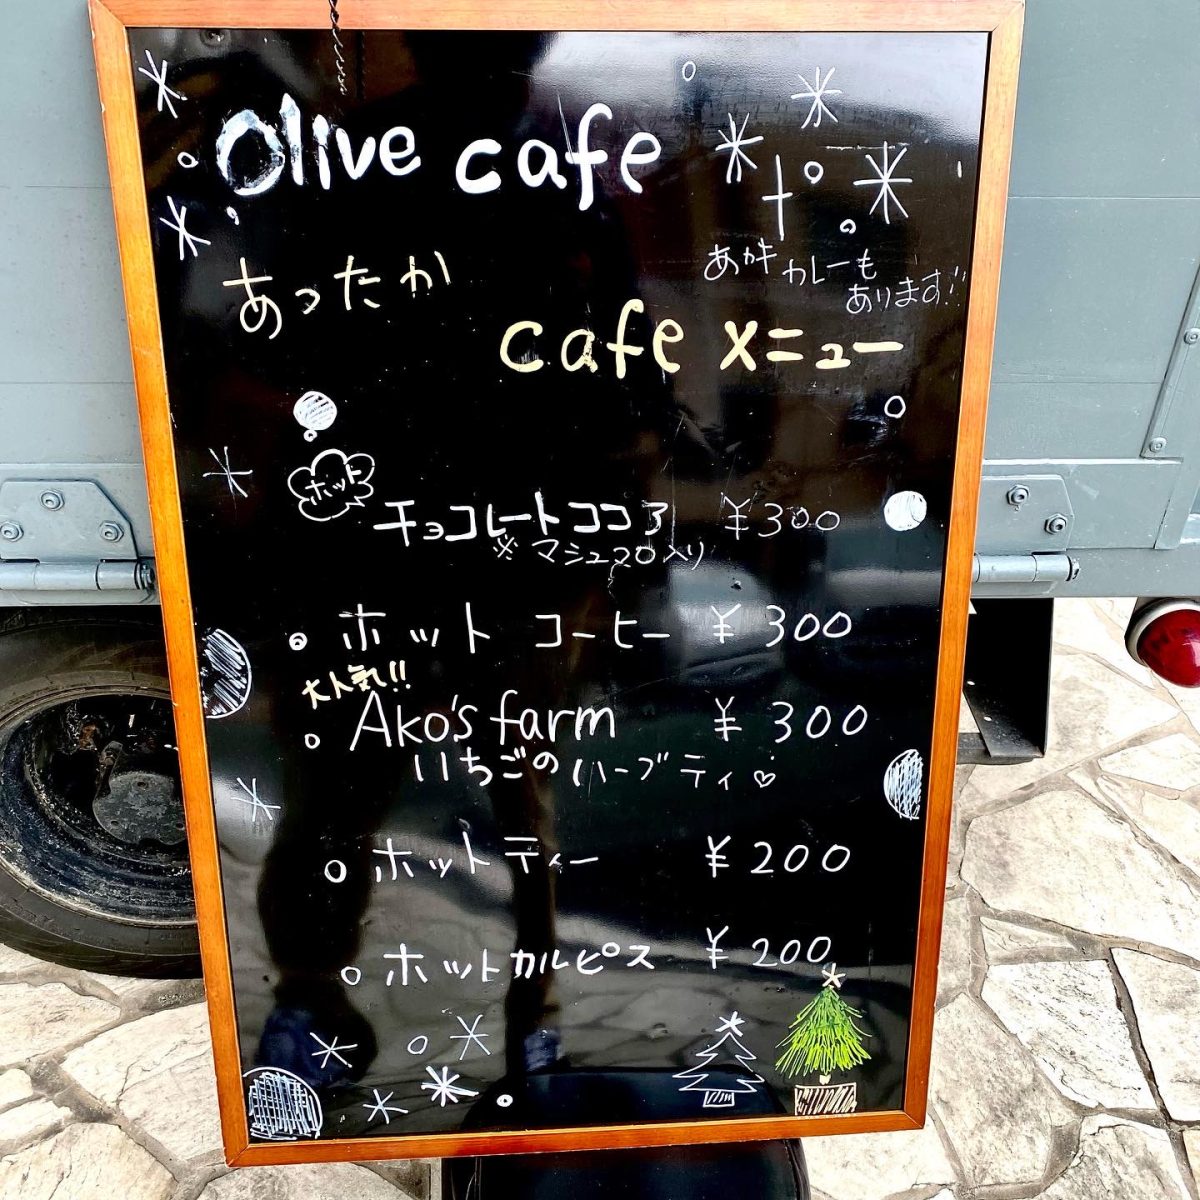 Olive cafe
あったか
あカキ カレーも
あります!!
cafe メニュー
ホット
チョコレートココア ¥300
※ マシュマロ入り
ホット コーヒー ¥300
大人気!!
Ako's farm ¥300
いちごのハーブティ♡
ホットティー ¥200
ホットカルピス ¥200